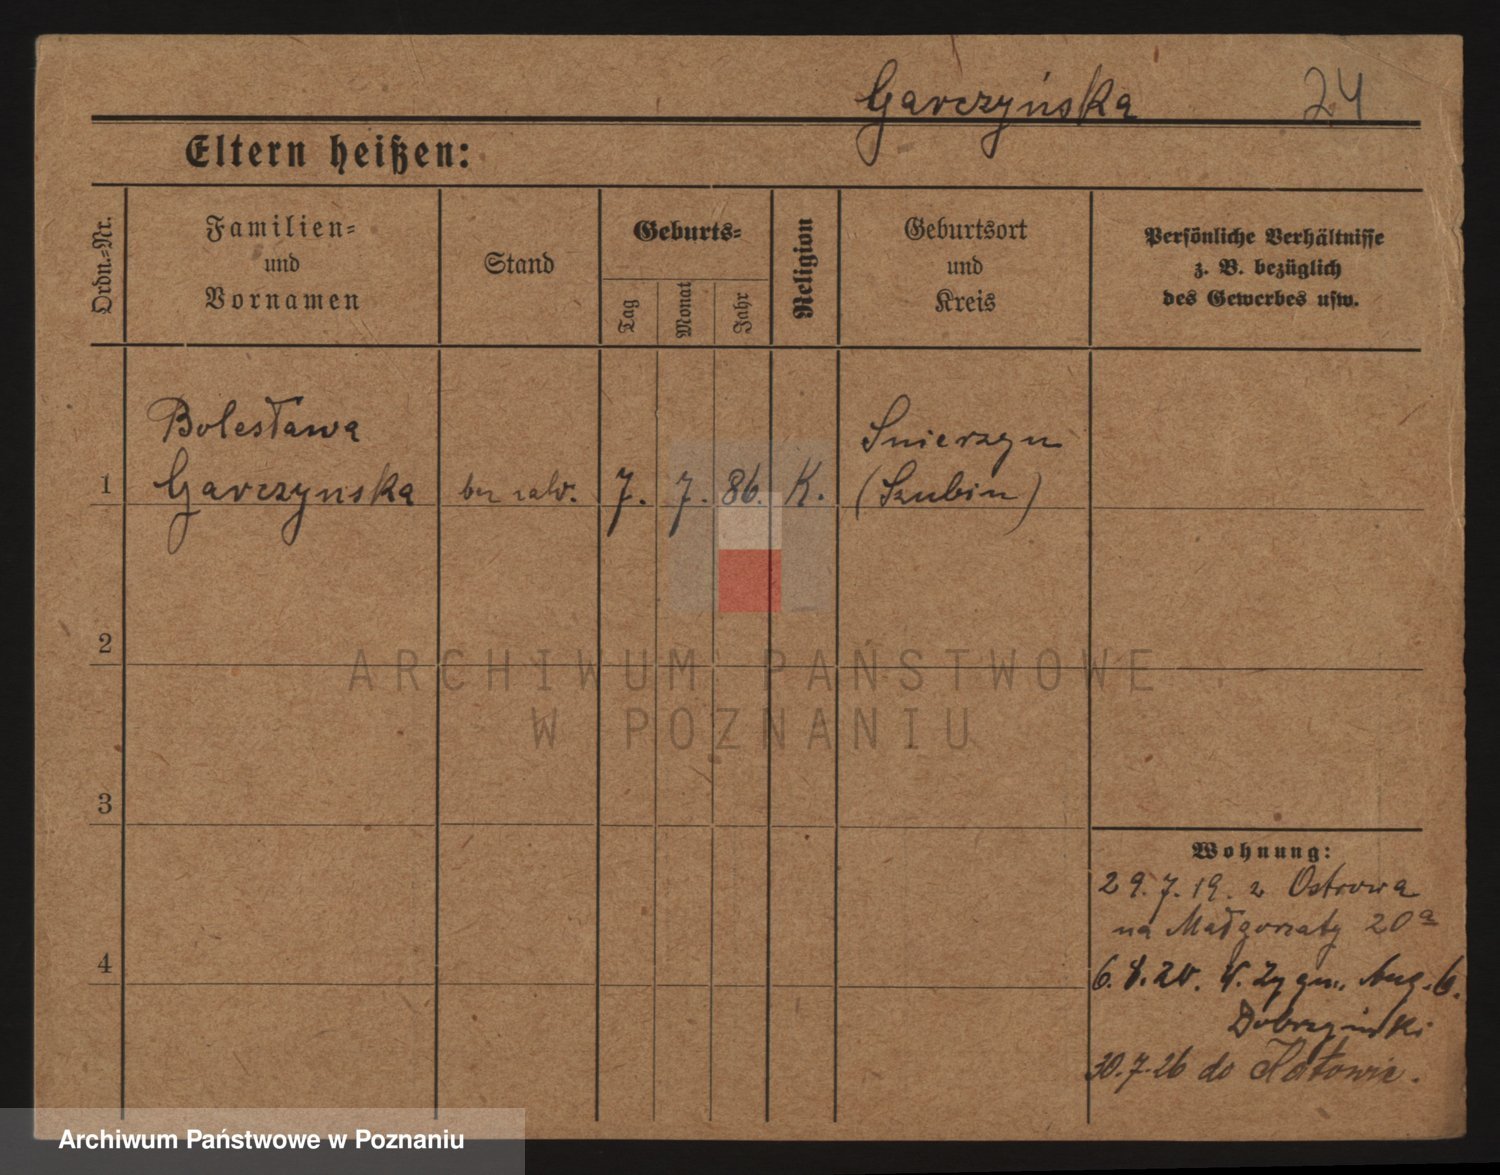 Garczyńska 24
Eltern heißen:
Ordn.-Nr.
Familien-
und
Vornamen
Stand
Geburts-
Tag
Monat
Jahr
Religion
Geburtsort
und
Kreis
Persönliche Verhältnisse
z. B. bezüglich
des Gewerbes usw.
Bolesława Snierzyn
1 Garczynska bez zaw. 7. 7. 86. K. (Szubin)
2
ARCHIWUM PAŃSTWOWE
W POZNANIU
3
Wohnung:
29.7.19. z Ostrowa
na Małgorzaty 20a
4
6.8.20. Zygm. Aug. 6.
Dobrzyński
30.7.26 do
Archiwum Państwowe w Poznaniu